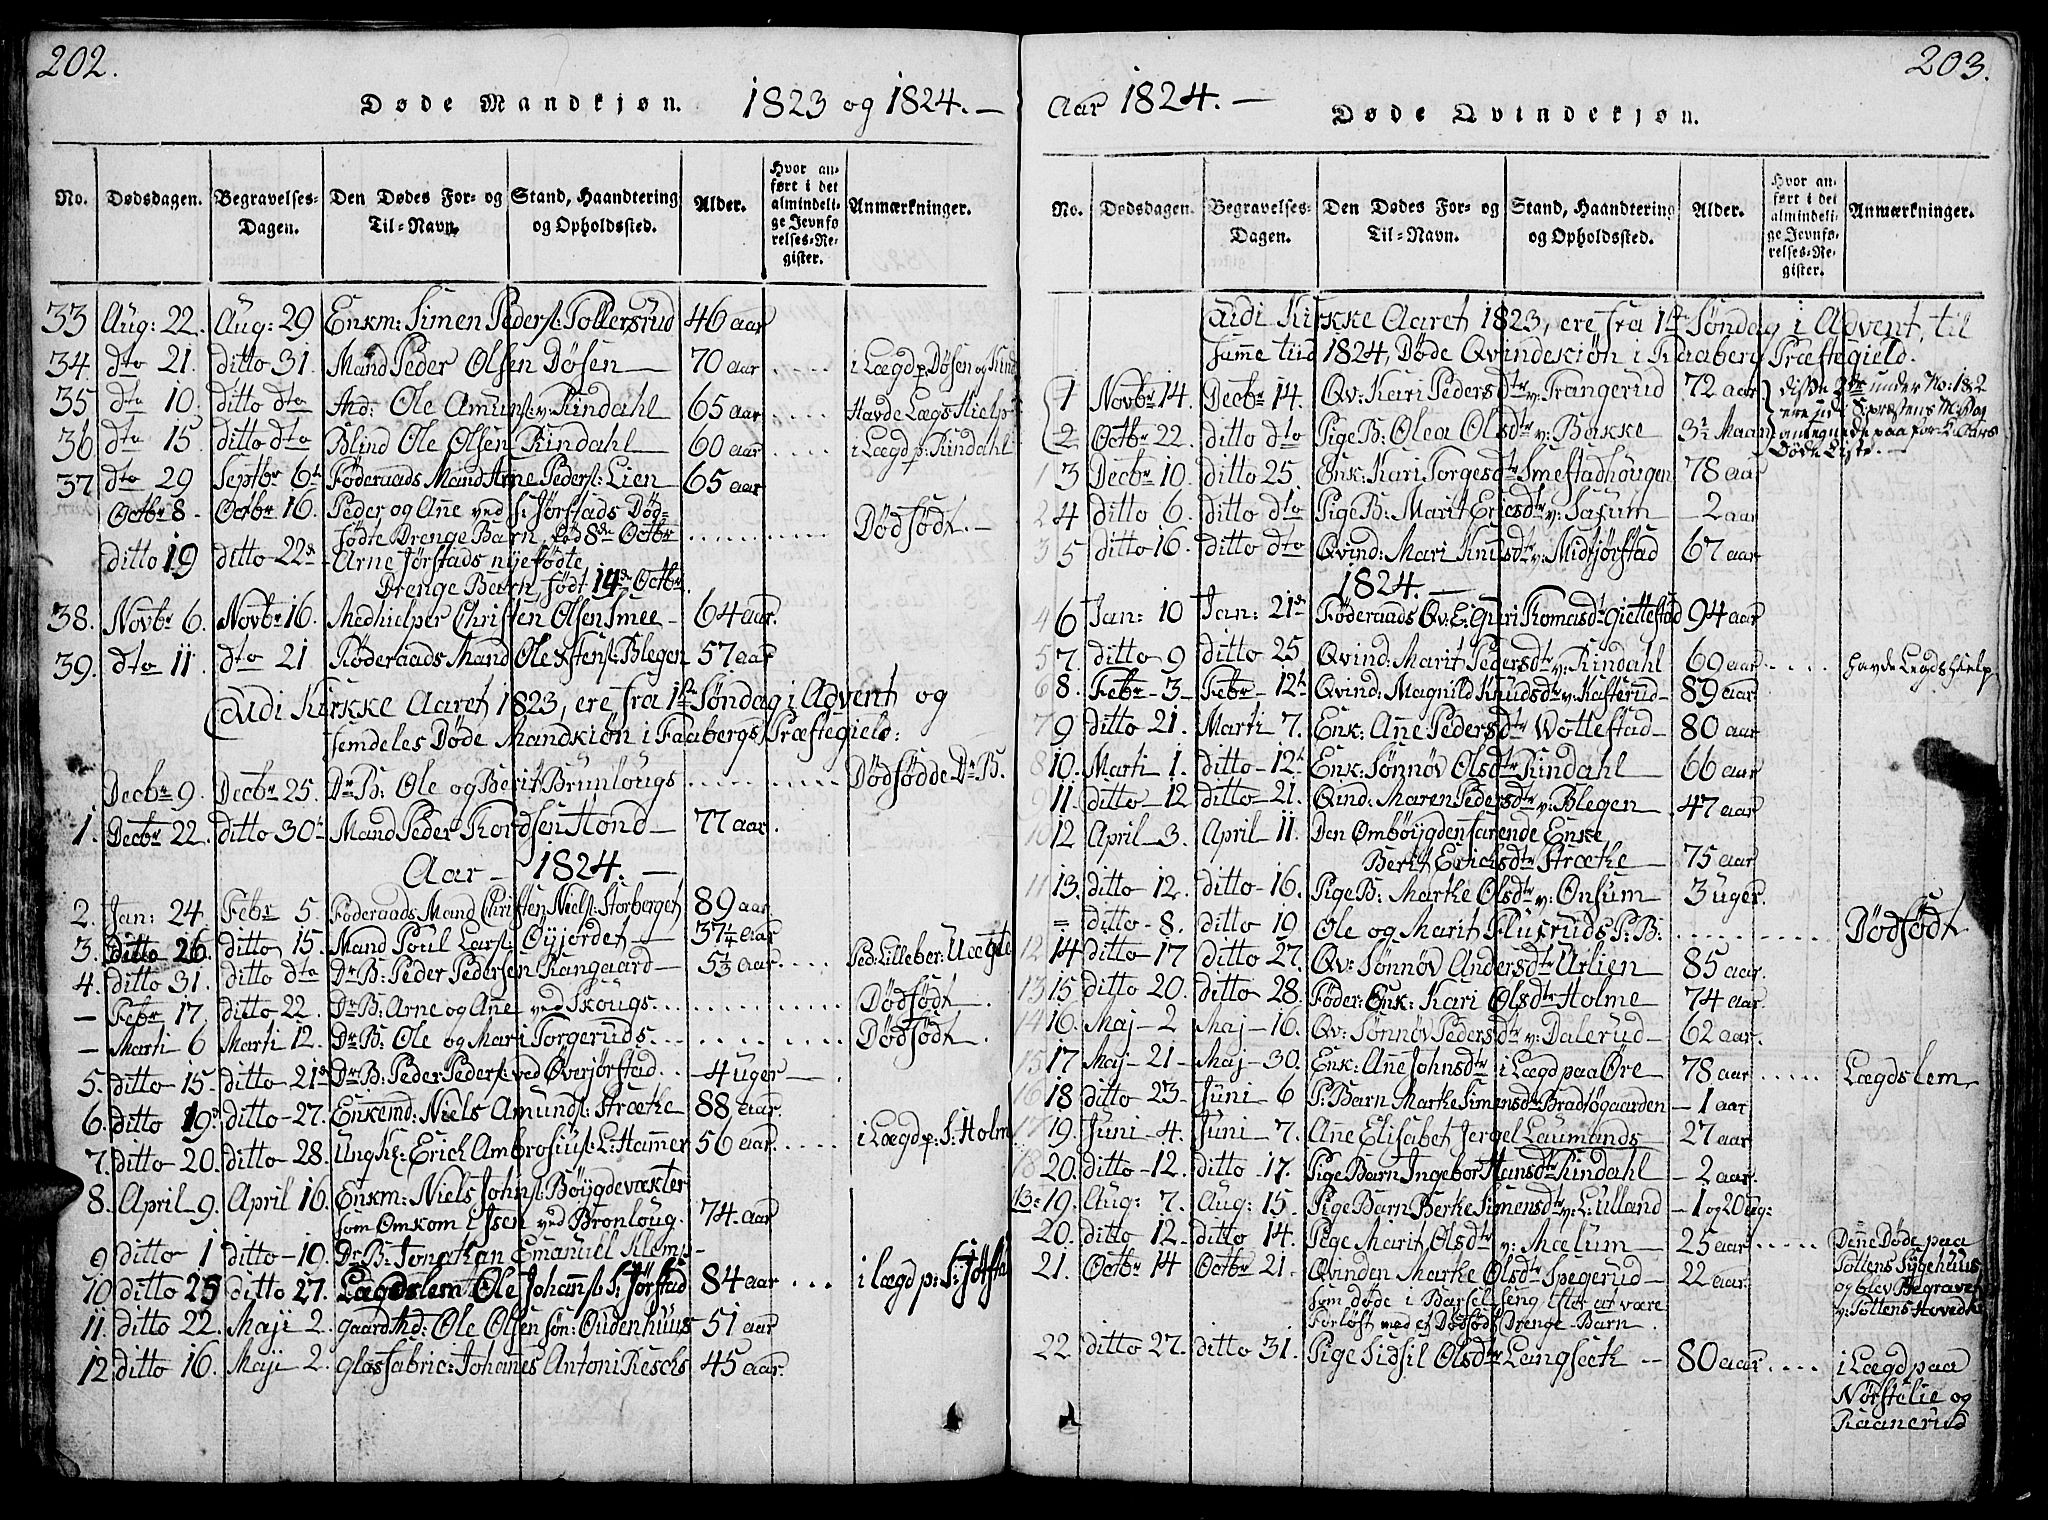 202.
Døde Mandkjøn. 1823 og 1824. —
No. Dødsdagen. Begravelses-Dagen. Den Dødes For- og Til-Navn. Stand, Haandtering og Opholdssted. Alder. Hvor anført i det almindelige Jevnførelses-Register. Anmærkninger.
33 Aug: 22. Aug: 29 Enkm: Simen Peders: Tollersrud 46 aar
34. dto 21. ditto 31. Mand Peder Olsen Døsen — 70 aar .... i Lægd p. Døsen og
35 dto 10. ditto dto Ole Amuns: v: Rindahl 65 aar .... Havde Lægs Hielp
36 dto 15 ditto dto Blind Ole Olsen Rindahl 60 aar .... i Lægd p: Rindahl
37 dto 29 Septbr 6te Föderaads Mand Arne Peders: Lien 65 aar
Octbr 8 - Octbr 16. Peder og Ane ved S: Jørstads Död-
födte Drenge Barn, föd 8de Octbr ......... Dödfödt. —
ditto 19 ditto 22de - Arne Jørstads nyefödte
Drenge Barn, födt 14de Octbr.
38. Novbr 6. Novbr 16. Medhielper Christen Olsen Smee - 64 aar.
39. dto 11. dto 21 Föderaads Mand Ole Stens: Blegen 57 aar
Udi Kirkke Aaret 1823, ere fra 1ste Søndag i Advent og
fremdeles Døde Mandkiön i Faabergs Præstegield:
Decbr 9. Decbr 25. Dr B: Ole og Berit Brunlougs ......... Dödfödde Dr B.
1. Decbr 22. ditto 30te Mand Peder Tordsen Hond — 77 aar.
Aar — 1824. —
2. Jan: 24. Febr 5. Föderaads Mand Christen Niels: Storberget 89 aar
3. ditto 26. ditto 15. Mand Poul Lars: Øyjordet — 37¼ aar
4. ditto 31. ditto dto Dr B: Peder Pedersen Rangaard — 5½ aar .... Ped: Lilleber: Uægte
— Febr 17. ditto 22. Dr B: Arne og Ane ved Skougs ......... Dödfödt.
— Marti 6 Marti 12. Dr B: Ole og Mari Torgeruds ......... Dödfödt.
5. ditto 15- ditto 21de Dr B: Peder Peders: ved Øverjørstad .. — 4 uger —
6. ditto 19de ditto - 27. Enkemd: Niels Amunds: Stræthe 88 aar.
7. ditto 20. ditto 28. Ungk: Erich Ambrosius: L: Hammer 56 aar .... i Lægd p: S: Holm
8. April 9. April 16. Enkm: Niels Johns: Böygdevægter
som Omkom i Isen ved Bronloug. 74. aar
9 ditto 1 ditto - 19. Dr B: Jonathan Emanuel Klems -
10 ditto 25 ditto 27. Lægdslem Ole Johans: S: Jørstad 84 aar ... i lægd p: S: Jørsta
11 ditto 22. Maji 2. gaardmd: Ole Olsen Søn: Oudenhuus 51 aar
12 ditto 16. Maji 2. glasfabric: Johanes Antoni Reschs 45 aar.
203.
Aar 1824. — Døde Qvindekjøn.
No. Dødsdagen. Begravelses-Dagen. Den Dødes For- og Til-Navn. Stand, Haandtering og Opholdssted. Alder. Hvor anført i det almindelige Jevnførelses-Register. Anmærkninger.
Udi Kirkke Aaret 1823, ere fra 1ste Søndag i Advent, til
samme tiid 1824, Døde Qvindekiön i Faaberg Præstegield.
1 Novbr 14. Decbr 14. Qv: Kari Pedersdtr v: Trangerud 72 aar
2 Octbr 22. ditto dto Pige B: Olea Olsdtr v: Bakke — 3½ Maan
disse 2de under No: 1 & 2 ere udi S: præstens M: Bog antegnede paa for: Aars Døde Liste. —
3 Decbr 10. ditto 25. Enk: Kari Torgersdtr Smestadhougen 78 aar
4 ditto 6. ditto dto Pige B: Marit Ericsdtr v: Sarum — 2 aar
5 ditto 16. ditto dto Qvind: Mari Knusdtr v: Midtjørstad 67 aar
1824. —
6 Jan: 10 Jan: 21de Föderaads Qv: E: Guri Tomasdtr Giettestad 94 aar
7. ditto 9 ditto 25 Qvind: Marit Pedersdtr v: Rindahl 69 aar .... havde Legds Hielp
8. Febr - 3 - Febr - 12te Qvind: Magnild Knudsdtr v: Kasterud - 89 aar
9 ditto 21. Marti 7. Enk: Ane Pedersdtr Wollestad — 80 aar
10. Marti 1. ditto - 12te Enk: Sønnöv Olsdtr Rindahl — 66 aar
11. ditto - 12 ditto - 21. Qind: Maren Pedersdtr v: Blegen — 47 aar
12 April - 3. April 11. Den Ombøygdenfarende Enke
Berit Erichsdtr Stræthe — 75 aar
13. ditto 12. ditto - 16. Pige B: Marthe Olsdtr v: Onsum — 3 uger.
= ditto - 8. ditto 19 Ole og Marit Flugruds P: B: ......... Dödfödt
14 ditto 17 ditto 27. Qv: Sønnöv Andersdtr Urlien — 85 aar.
15 ditto 20. ditto 28. Föder: Enk: Kari Olsdtr Holme — 74 aar.
16. Maj - 2 Maj - 16. Qv: Sønnöv Pedersdtr v: Dalerud — 62 aar.
17 Maj - 21 - Maj - 30. Enk: Ane Johnsdtr i Lægd paa Øre — 78 aar ..... Lægdslem
18 ditto 23 Juni 6 P: Barn Marthe Simensdtr Bradtögaarden — 1 aar
19. Juni - 4. Juni - 7. Ane Elisabet Jergel Laumands 27 aar
20. ditto - 12. ditto - 17. Pige Barn Ingebor Hansdtr Rindahl — 2 aar
19. Aug: 7. Aug: 15. Pige Barn Berthe Simensdtr v: L: Lilland — 1 og 20 ug:
20. ditto 12. ditto 14. Pige Marit Olsdtr v: Mælum — 25 aar ..... Dene Døde paa
Tottens Sygehuus og blev Begravet v: Tottens Hovedk
21. Octbr 14 Octbr 21. Qvinden Marthe Olsdtr Spegerud — 22 aar.
som døde i Barselseng efter at være
Forløst med et Dödfödt Drenge-Barn.
22. ditto 27. ditto 31. Pige Sidsil Olsdtr Langseth -- 80 aar .... i Lægd paa
Nørstelie og
Kaanerud